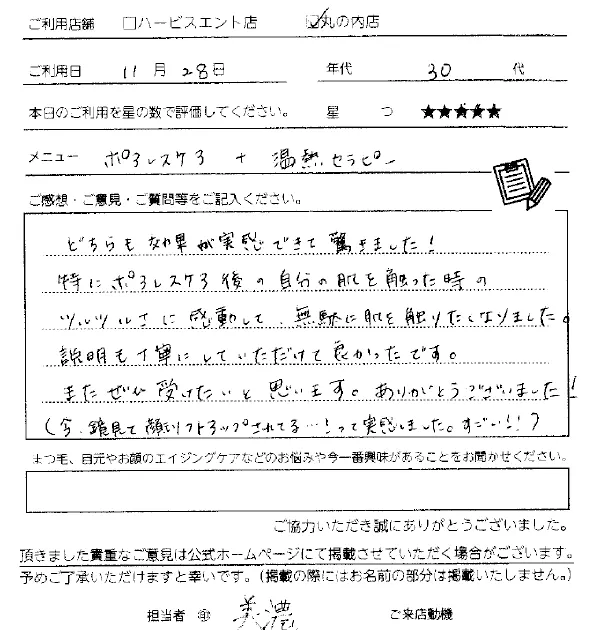 ご利用店舗 □ハービスエント店 ☑丸の内店
ご利用日 11月28日 年代 30代
本日のご利用を星の数で評価してください。 星 つ ★★★★★
メニュー ポ3レスケ3 + 温熱セラピー
ご感想・ご意見・ご質問等をご記入ください。
どちらも効果が実感できて驚きました!
特にポ3レスケ3後の自分の肌を触った時の
ツルツルさに感動して、無駄に肌を触りたくなりました。
説明も丁寧にしていただけて良かったです。
またぜひ受けたいと思います。ありがとうございました!
(今、鏡見て顔リフトアップされてる…!って実感しました。すごい!!)
まつ毛、目元やお顔のエイジングケアなどのお悩みや今一番興味があることをお聞かせください。
ご協力いただき誠にありがとうございました。
頂きました貴重なご意見は公式ホームページにて掲載させていただく場合がございます。
予めご了承いただけますと幸いです。(掲載の際にはお名前の部分は掲載いたしません。)
担当者 ㊞ 美濃 ご来店動機